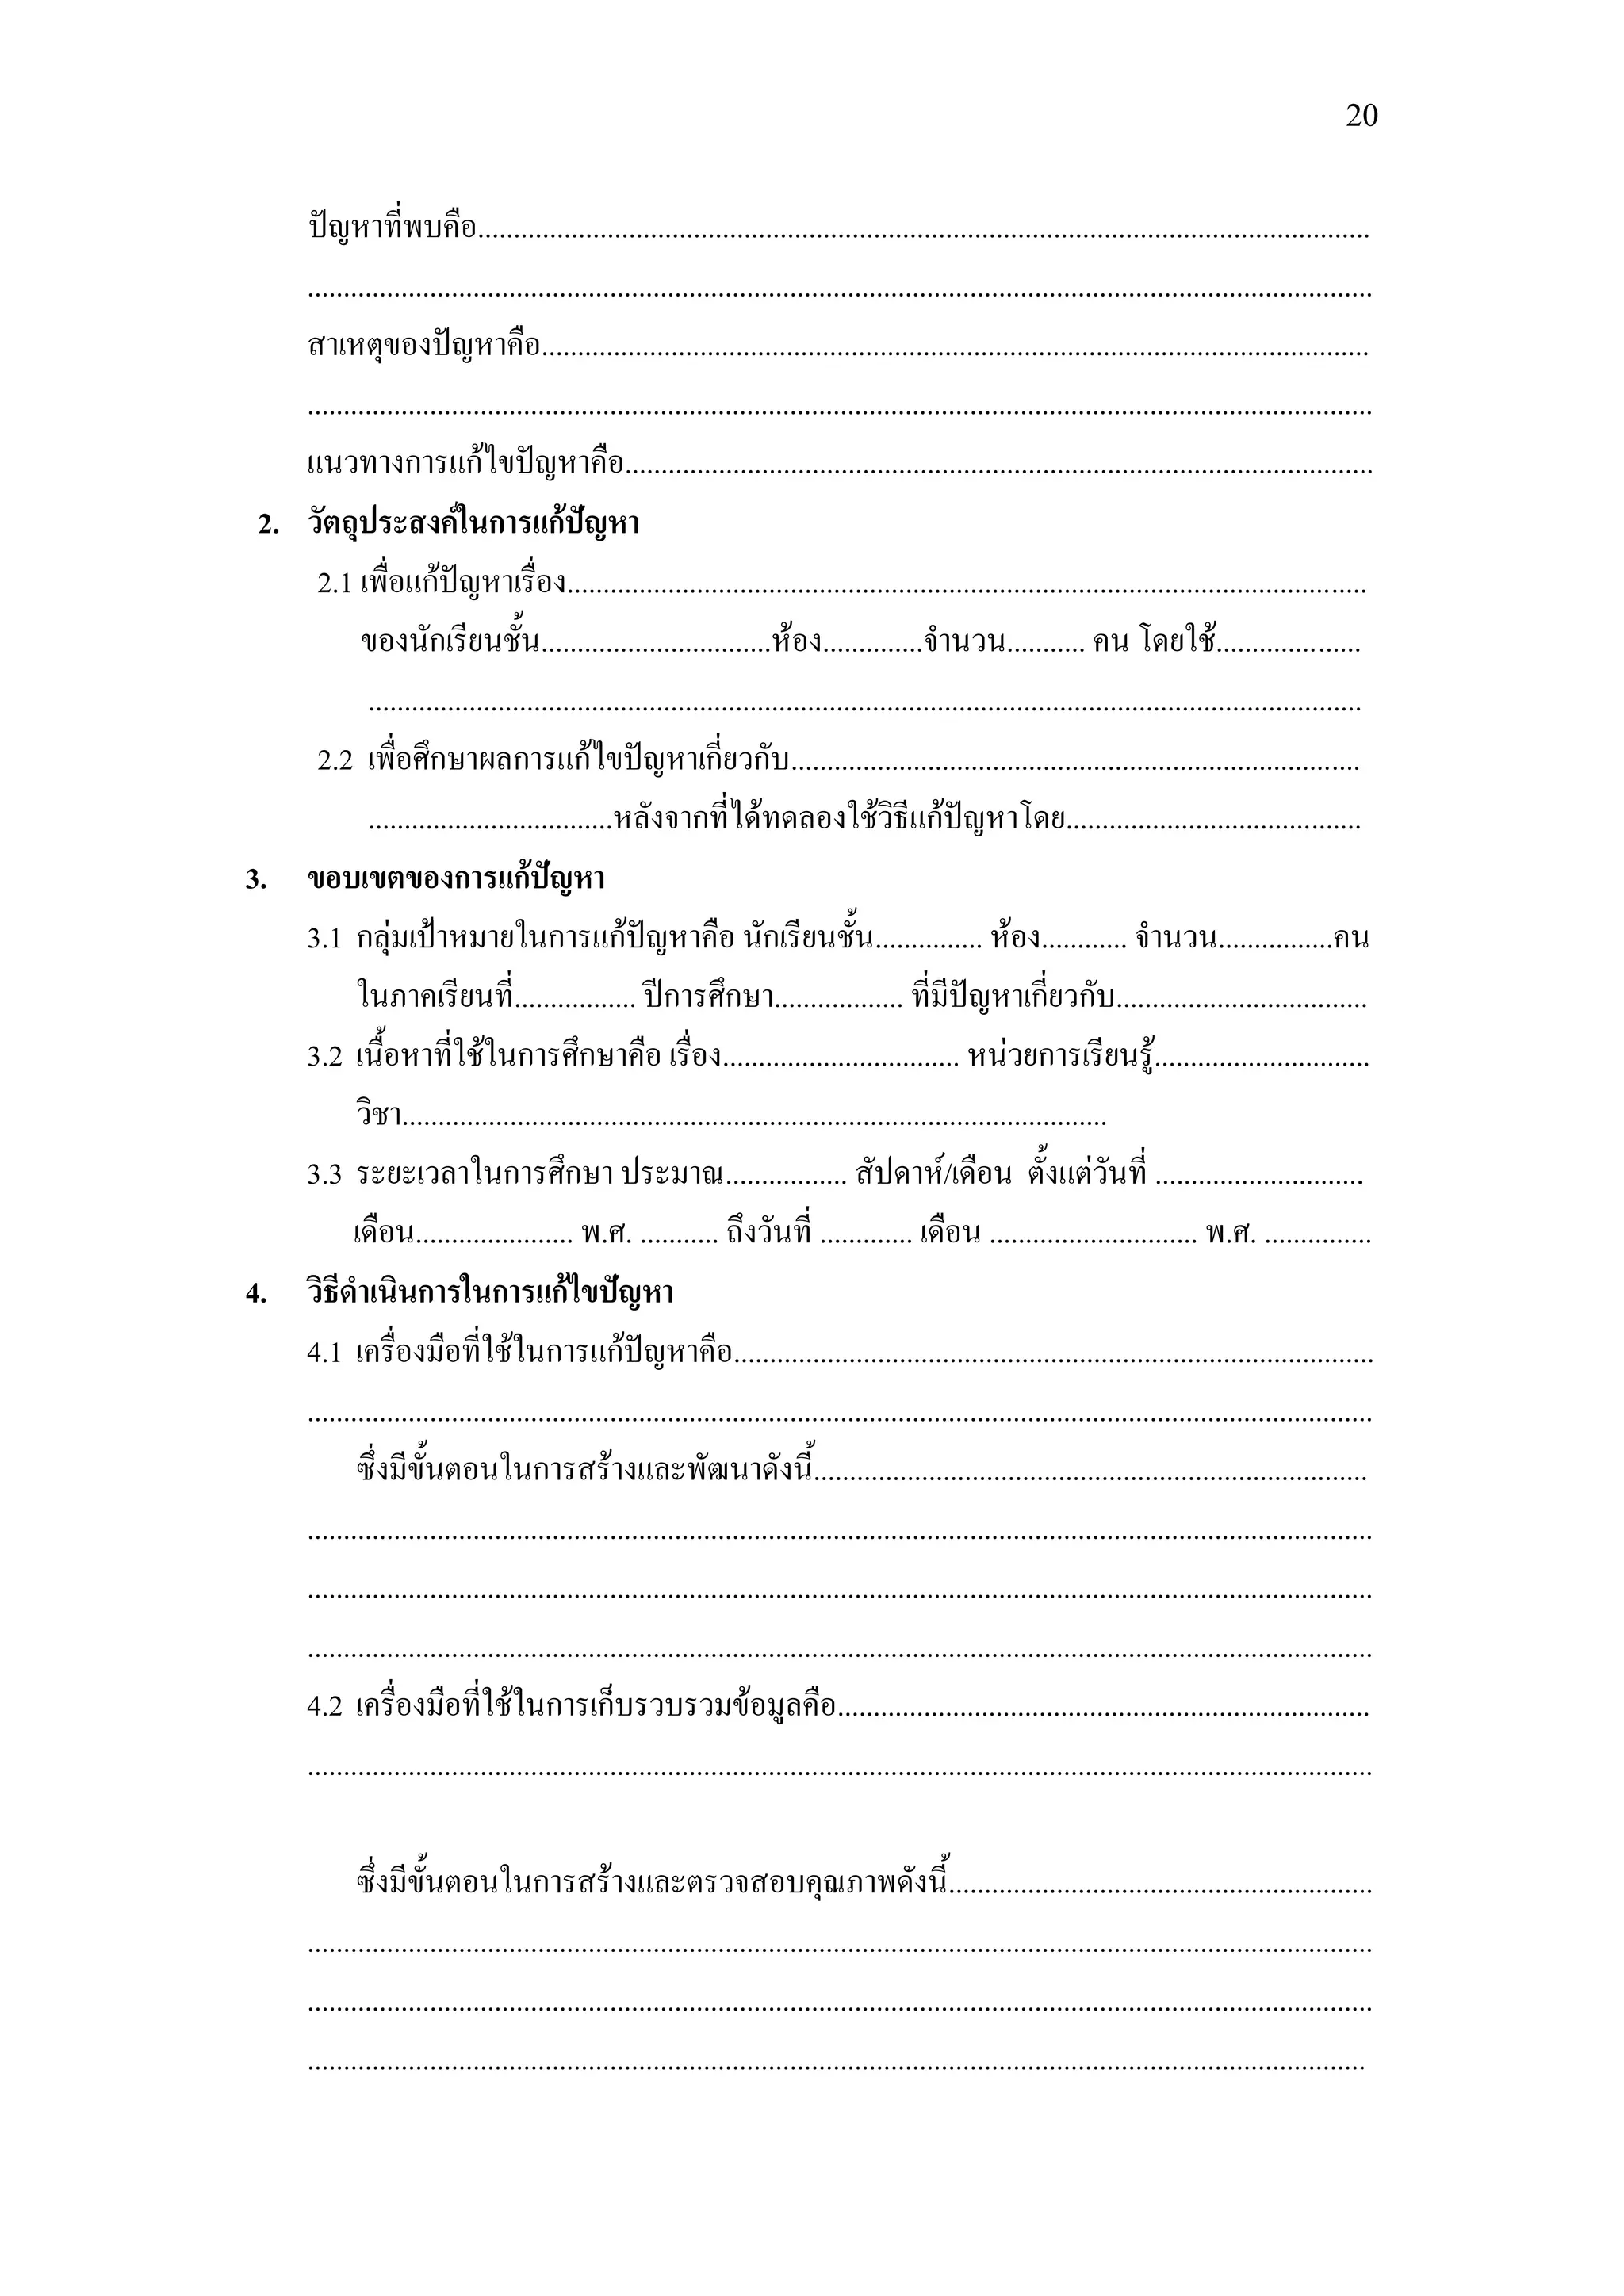 20
ปัญหาที่พบคือ............................................................................................................................
....................................................................................................................................................
สาเหตุของปัญหาคือ...................................................................................................................
....................................................................................................................................................
แนวทางการแก้ไขปัญหาคือ........................................................................................................
2. วัตถุประสงค์ในการแก้ปัญหา
2.1 เพื่อแก้ปัญหาเรื่อง...............................................................................................................
ของนักเรียนชั้น................................ห้อง..............จำนวน........... คน โดยใช้....................
..........................................................................................................................................
2.2 เพื่อศึกษาผลการแก้ไขปัญหาเกี่ยวกับ...............................................................................
..................................หลังจากที่ได้ทดลองใช้วิธีแก้ปัญหาโดย.........................................
3. ขอบเขตของการแก้ปัญหา
3.1 กลุ่มเป้าหมายในการแก้ปัญหาคือ นักเรียนชั้น............... ห้อง............ จำนวน................คน
ในภาคเรียนที่................. ปีการศึกษา.................. ที่มีปัญหาเกี่ยวกับ...................................
3.2 เนื้อหาที่ใช้ในการศึกษาคือ เรื่อง................................. หน่วยการเรียนรู้..............................
วิชา..................................................................................................
3.3 ระยะเวลาในการศึกษา ประมาณ................. สัปดาห์/เดือน ตั้งแต่วันที่ .............................
เดือน...................... พ.ศ. ........... ถึงวันที่ ............. เดือน ............................. พ.ศ. ...............
4. วิธีดำเนินการในการแก้ไขปัญหา
4.1 เครื่องมือที่ใช้ในการแก้ปัญหาคือ.........................................................................................
....................................................................................................................................................
ซึ่งมีขั้นตอนในการสร้างและพัฒนาดังนี้.............................................................................
....................................................................................................................................................
....................................................................................................................................................
....................................................................................................................................................
4.2 เครื่องมือที่ใช้ในการเก็บรวบรวมข้อมูลคือ..........................................................................
....................................................................................................................................................
ซึ่งมีขั้นตอนในการสร้างและตรวจสอบคุณภาพดังนี้...........................................................
....................................................................................................................................................
....................................................................................................................................................
...................................................................................................................................................